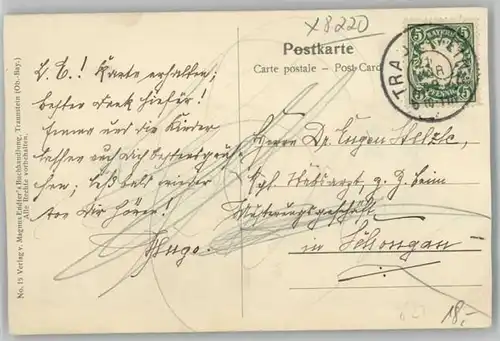 x8220
Postkarte
Carte postale — Post-Card
BAYERN
5 5
PFENNIG
TRAUNSTEIN
L. E.! Karte erhalten;
besten Dank hiefür!
Emma und die Kinder
lassen auch dich bestens grüs-
sen; laß bald wieder
von Dir hören!
Hugo.
Herrn Dr. Eugen Stelzle,
Kgl. Stabsarzt, z. Z. beim
Musterungsgeschäft
in Schongau
18,-
No. 15 Verlag v. Magnus Endter's Buchhandlung, Traunstein (Ob.-Bay.)
Alle Rechte vorbehalten.